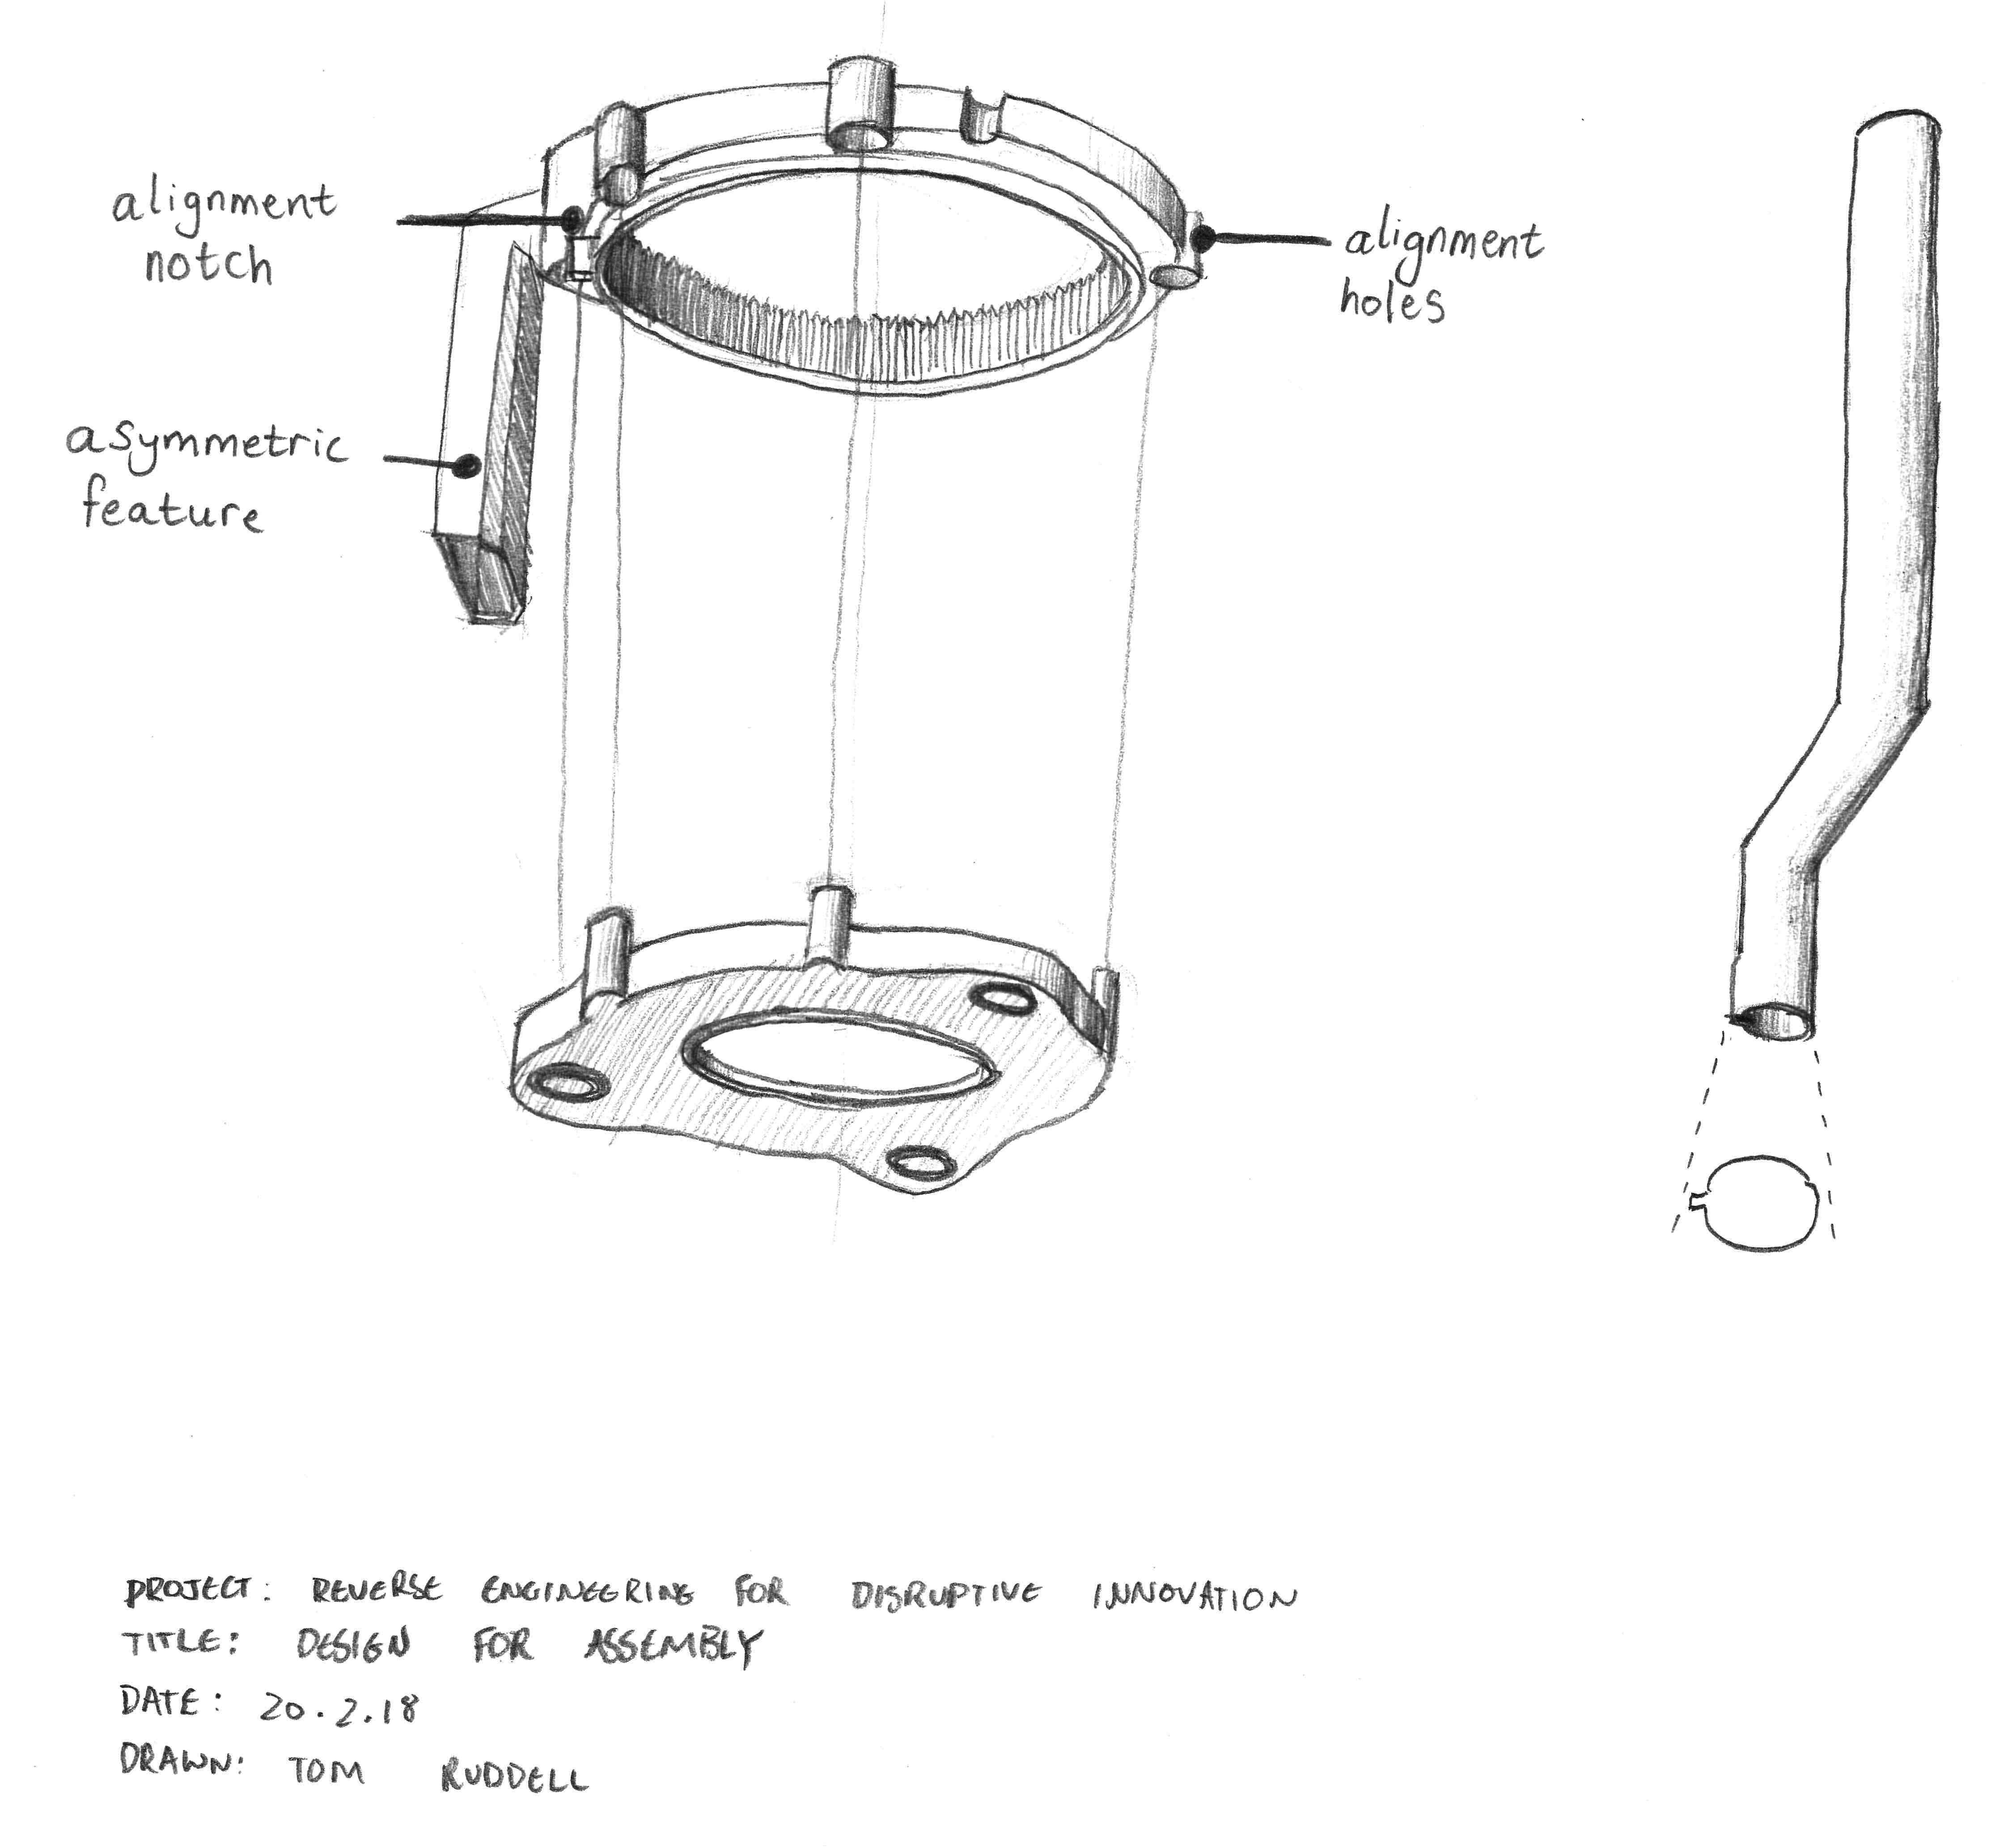 alignment
notch
alignment
holes
asymmetric
feature
PROJECT: REVERSE ENGINEERING FOR DISRUPTIVE INNOVATION
TITLE: DESIGN FOR ASSEMBLY
DATE: 20.2.18
DRAWN: TOM RUDDELL